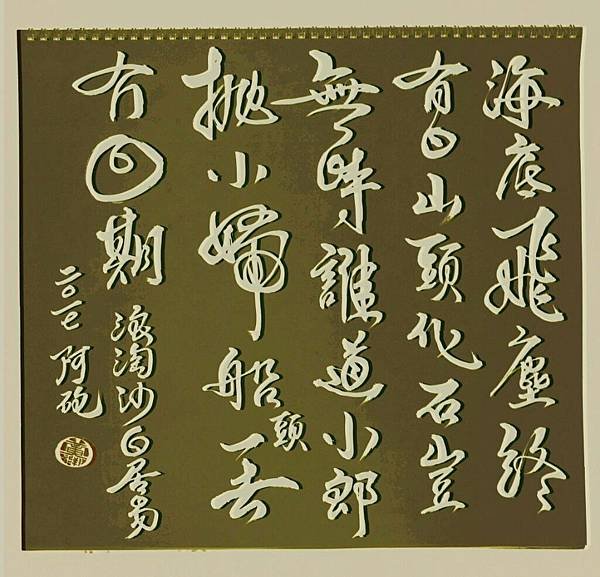 海底飛塵終
有日山頭化石豈
無時誰道小郎
拋小婦船頭一去
冇回期
浪淘沙白居易
二〇一七 阿碗